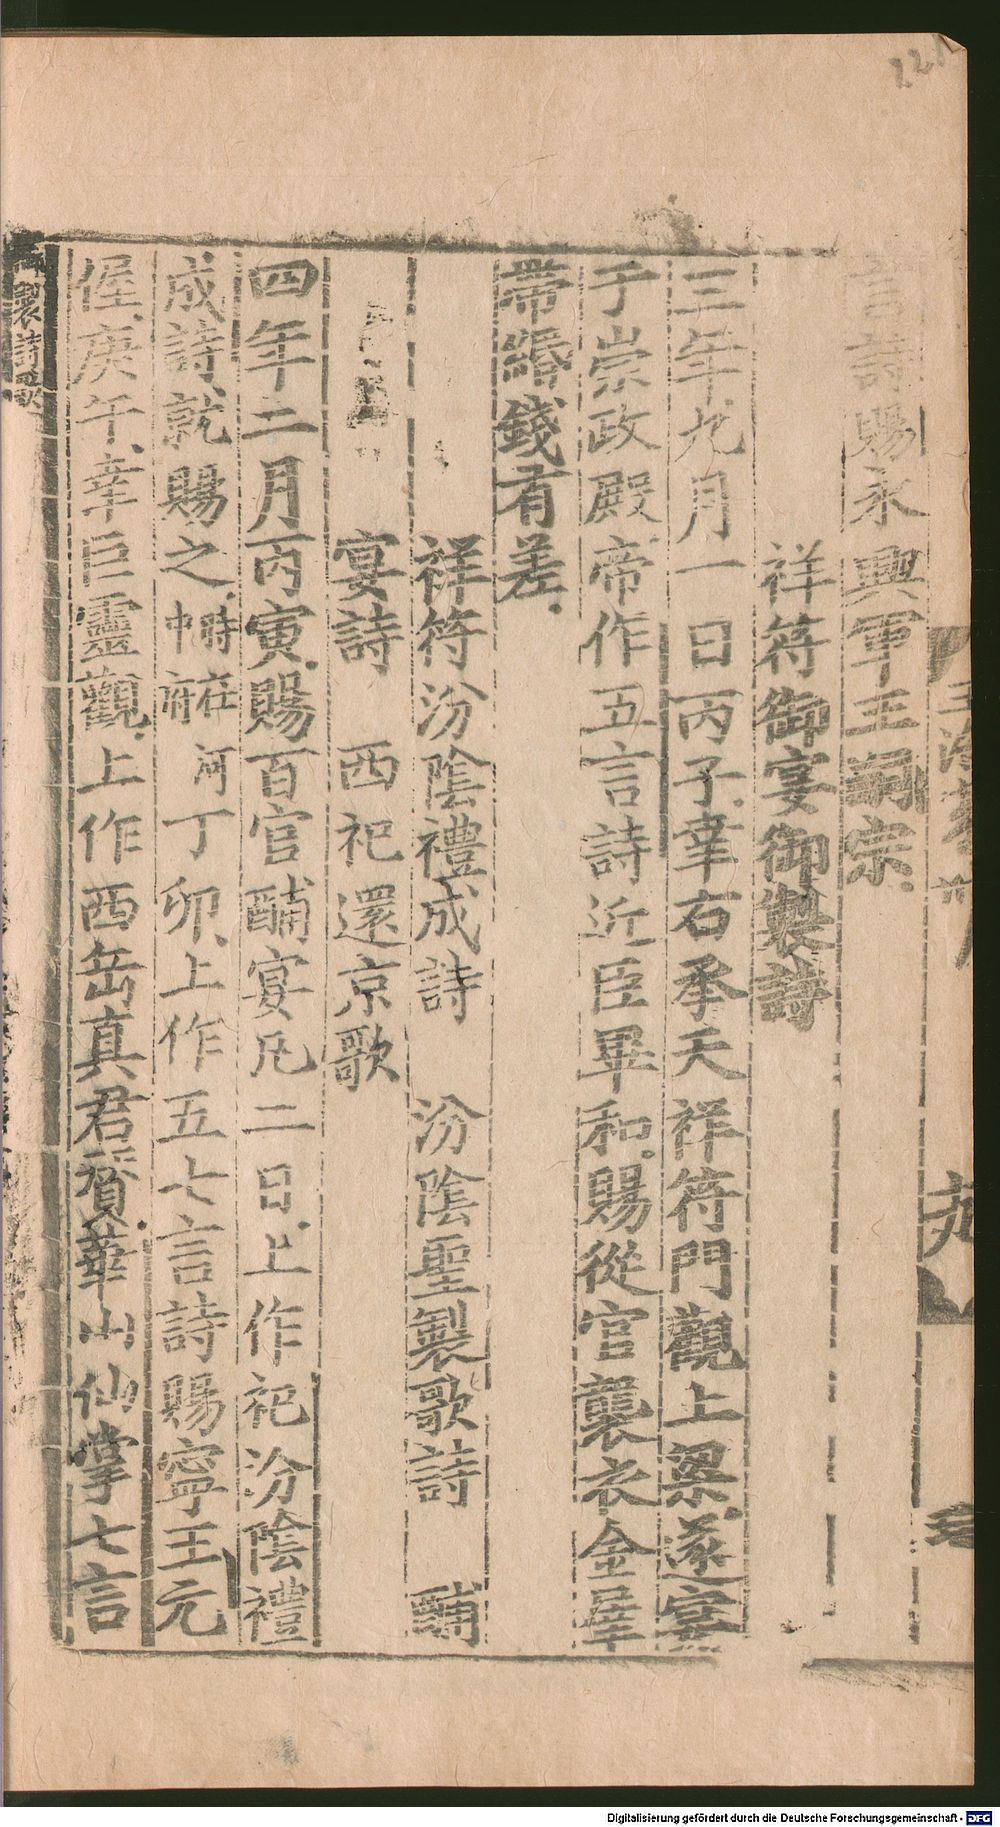 221
言詩賜永興軍王嗣宗
祥符御宴御製詩
三年九月一日丙子幸右承天祥符門觀上梁遂宴
于崇政殿帝作五言詩近臣畢和賜從官襲衣金犀
帶緡錢有差
祥符汾陰禮成詩 汾陰聖製歌詩 酺
宴詩 西祀還京歌
四年二月丙寅賜百官酺宴凡二日上作祀汾陰禮
成詩就賜之時在河中府丁卯上作五七言詩賜寧王元
偓庚午幸巨靈觀上作西岳真君贊華山仙掌七言
製詩歌
Digitalisierung gefördert durch die Deutsche Forschungsgemeinschaft - DFG